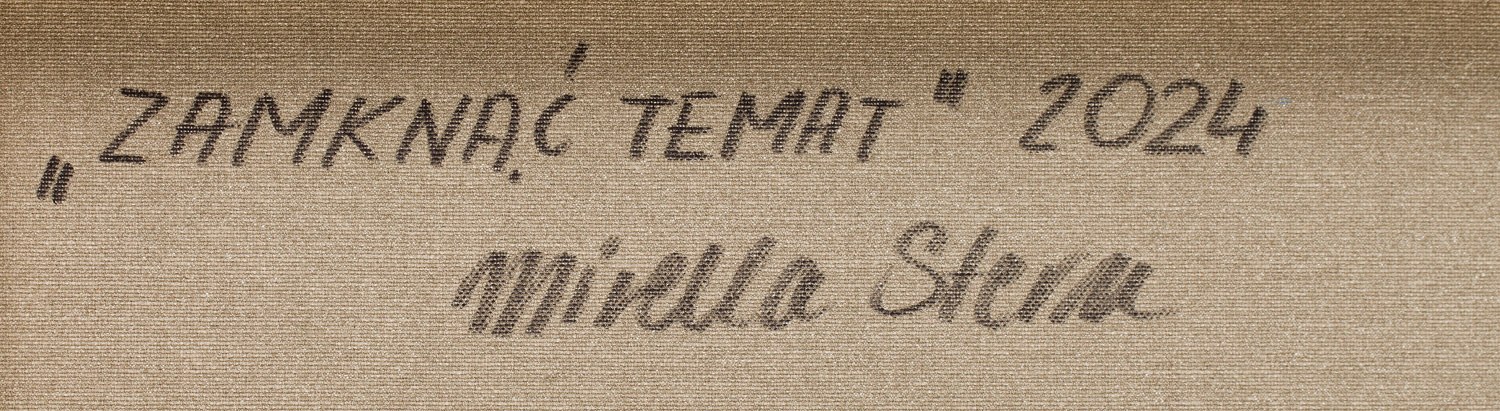 „ZAMKNĄĆ TEMAT" 2024
Mirella Stern